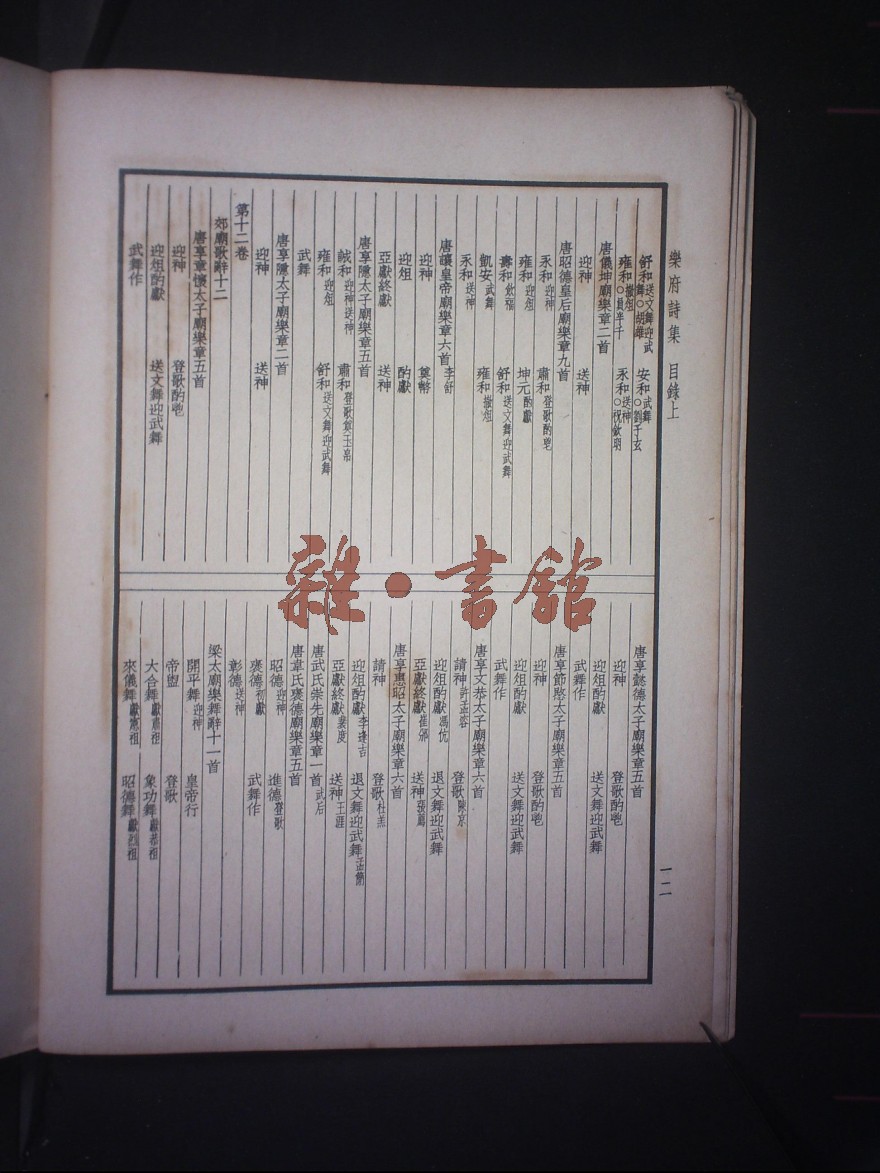 樂府詩集 目錄上
舒和送文舞迎武舞○胡雄 安和武舞○劉子玄
雍和徹俎○員半千 永和送神○祝欽明
唐儀坤廟樂章二首
迎神 送神
唐昭德皇后廟樂章九首
永和迎神 肅和登歌酌鬯
雍和迎俎 坤元酌獻
壽和飲福 舒和送文舞迎武舞
凱安武舞 雍和徹俎
永和送神
唐讓皇帝廟樂章六首李舒
迎神 奠幣
迎俎 酌獻
亞獻終獻 送神
唐享隱太子廟樂章五首
誠和迎神送神 肅和登歌奠玉帛
雍和迎俎 舒和送文舞迎武舞
武舞
唐享隱太子廟樂章二首
迎神 送神
第十二卷
郊廟歌辭十二
唐享章懷太子廟樂章五首
迎神 登歌酌鬯
迎俎酌獻 送文舞迎武舞
武舞作
唐享懿德太子廟樂章五首
迎神 登歌酌鬯
迎俎酌獻 送文舞迎武舞
武舞作
唐享節愍太子廟樂章五首
迎神 登歌酌鬯
迎俎酌獻 送文舞迎武舞
武舞作
唐享文恭太子廟樂章六首
請神許孟容 登歌陳京
迎俎酌獻馮伉 退文舞迎武舞
亞獻終獻崔邠 送神張薦
唐享惠昭太子廟樂章六首
請神 登歌杜羔
迎俎酌獻李逢吉 退文舞迎武舞孟簡
亞獻終獻裴度 送神王涯
唐武氏崇先廟樂章一首武后
唐韋氏褒德廟樂章五首
昭德迎神 進德登歌
褒德初獻 武舞作
彰德送神
梁太廟樂舞辭十一首
開平舞迎神 皇帝行
帝盥 登歌
大合舞獻肅祖 象功舞獻恭祖
來儀舞獻憲祖 昭德舞獻烈祖
一二
雜·書館